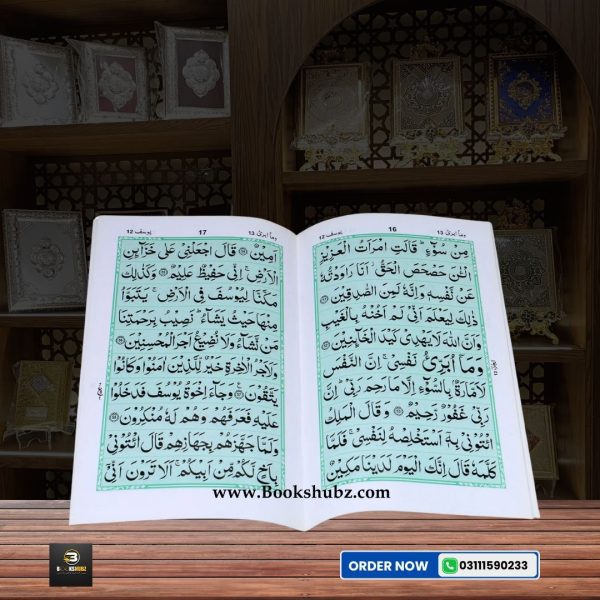 وما ابرئ 13 16 يوسف 12
مِنْ سُوْٓءٍ ؕ قَالَتِ امْرَاَتُ الْعَزِیْزِ
الْـٰٔنَ حَصْحَصَ الْحَقُّ ؗ اَنَا رَاوَدْتُّهٗ
عَنْ نَّفْسِهٖ وَاِنَّهٗ لَمِنَ الصّٰدِقِیْنَ ۝
ذٰلِكَ لِیَعْلَمَ اَنِّیْ لَمْ اَخُنْهُ بِالْغَیْبِ
وَاَنَّ اللّٰهَ لَا یَهْدِیْ كَیْدَ الْخَآىِٕنِیْنَ ۝
وَمَاۤ اُبَرِّئُ نَفْسِیْ ۚ اِنَّ النَّفْسَ
لَاَمَّارَةٌۢ بِالسُّوْٓءِ اِلَّا مَا رَحِمَ رَبِّیْ ؕ اِنَّ
رَبِّیْ غَفُوْرٌ رَّحِیْمٌ ۝ وَقَالَ الْمَلِكُ
ائْتُوْنِیْ بِهٖۤ اَسْتَخْلِصْهُ لِنَفْسِیْ ۚ فَلَمَّا
كَلَّمَهٗ قَالَ اِنَّكَ الْیَوْمَ لَدَیْنَا مَكِیْنٌ
وما ابرئ 13 17 يوسف 12
اَمِیْنٌ ۝ قَالَ اجْعَلْنِیْ عَلٰی خَزَآىِٕنِ
الْاَرْضِ ۚ اِنِّیْ حَفِیْظٌ عَلِیْمٌ ۝ وَكَذٰلِكَ
مَكَّنَّا لِیُوْسُفَ فِی الْاَرْضِ ۚ یَتَبَوَّاُ
مِنْهَا حَیْثُ یَشَآءُ ؕ نُصِیْبُ بِرَحْمَتِنَا
مَنْ نَّشَآءُ وَلَا نُضِیْعُ اَجْرَ الْمُحْسِنِیْنَ ۝
وَلَاَجْرُ الْاٰخِرَةِ خَیْرٌ لِّلَّذِیْنَ اٰمَنُوْا وَكَانُوْا
یَتَّقُوْنَ ۝ وَجَآءَ اِخْوَةُ یُوْسُفَ فَدَخَلُوْا
عَلَیْهِ فَعَرَفَهُمْ وَهُمْ لَهٗ مُنْكِرُوْنَ ۝
وَلَمَّا جَهَّزَهُمْ بِجَهَازِهِمْ قَالَ ائْتُوْنِیْ
بِاَخٍ لَّكُمْ مِّنْ اَبِیْكُمْ ۚ اَلَا تَرَوْنَ اَنِّیْۤ
www.Bookshubz.com
B
BOOKSHUBZ
ORDER NOW 03111590233